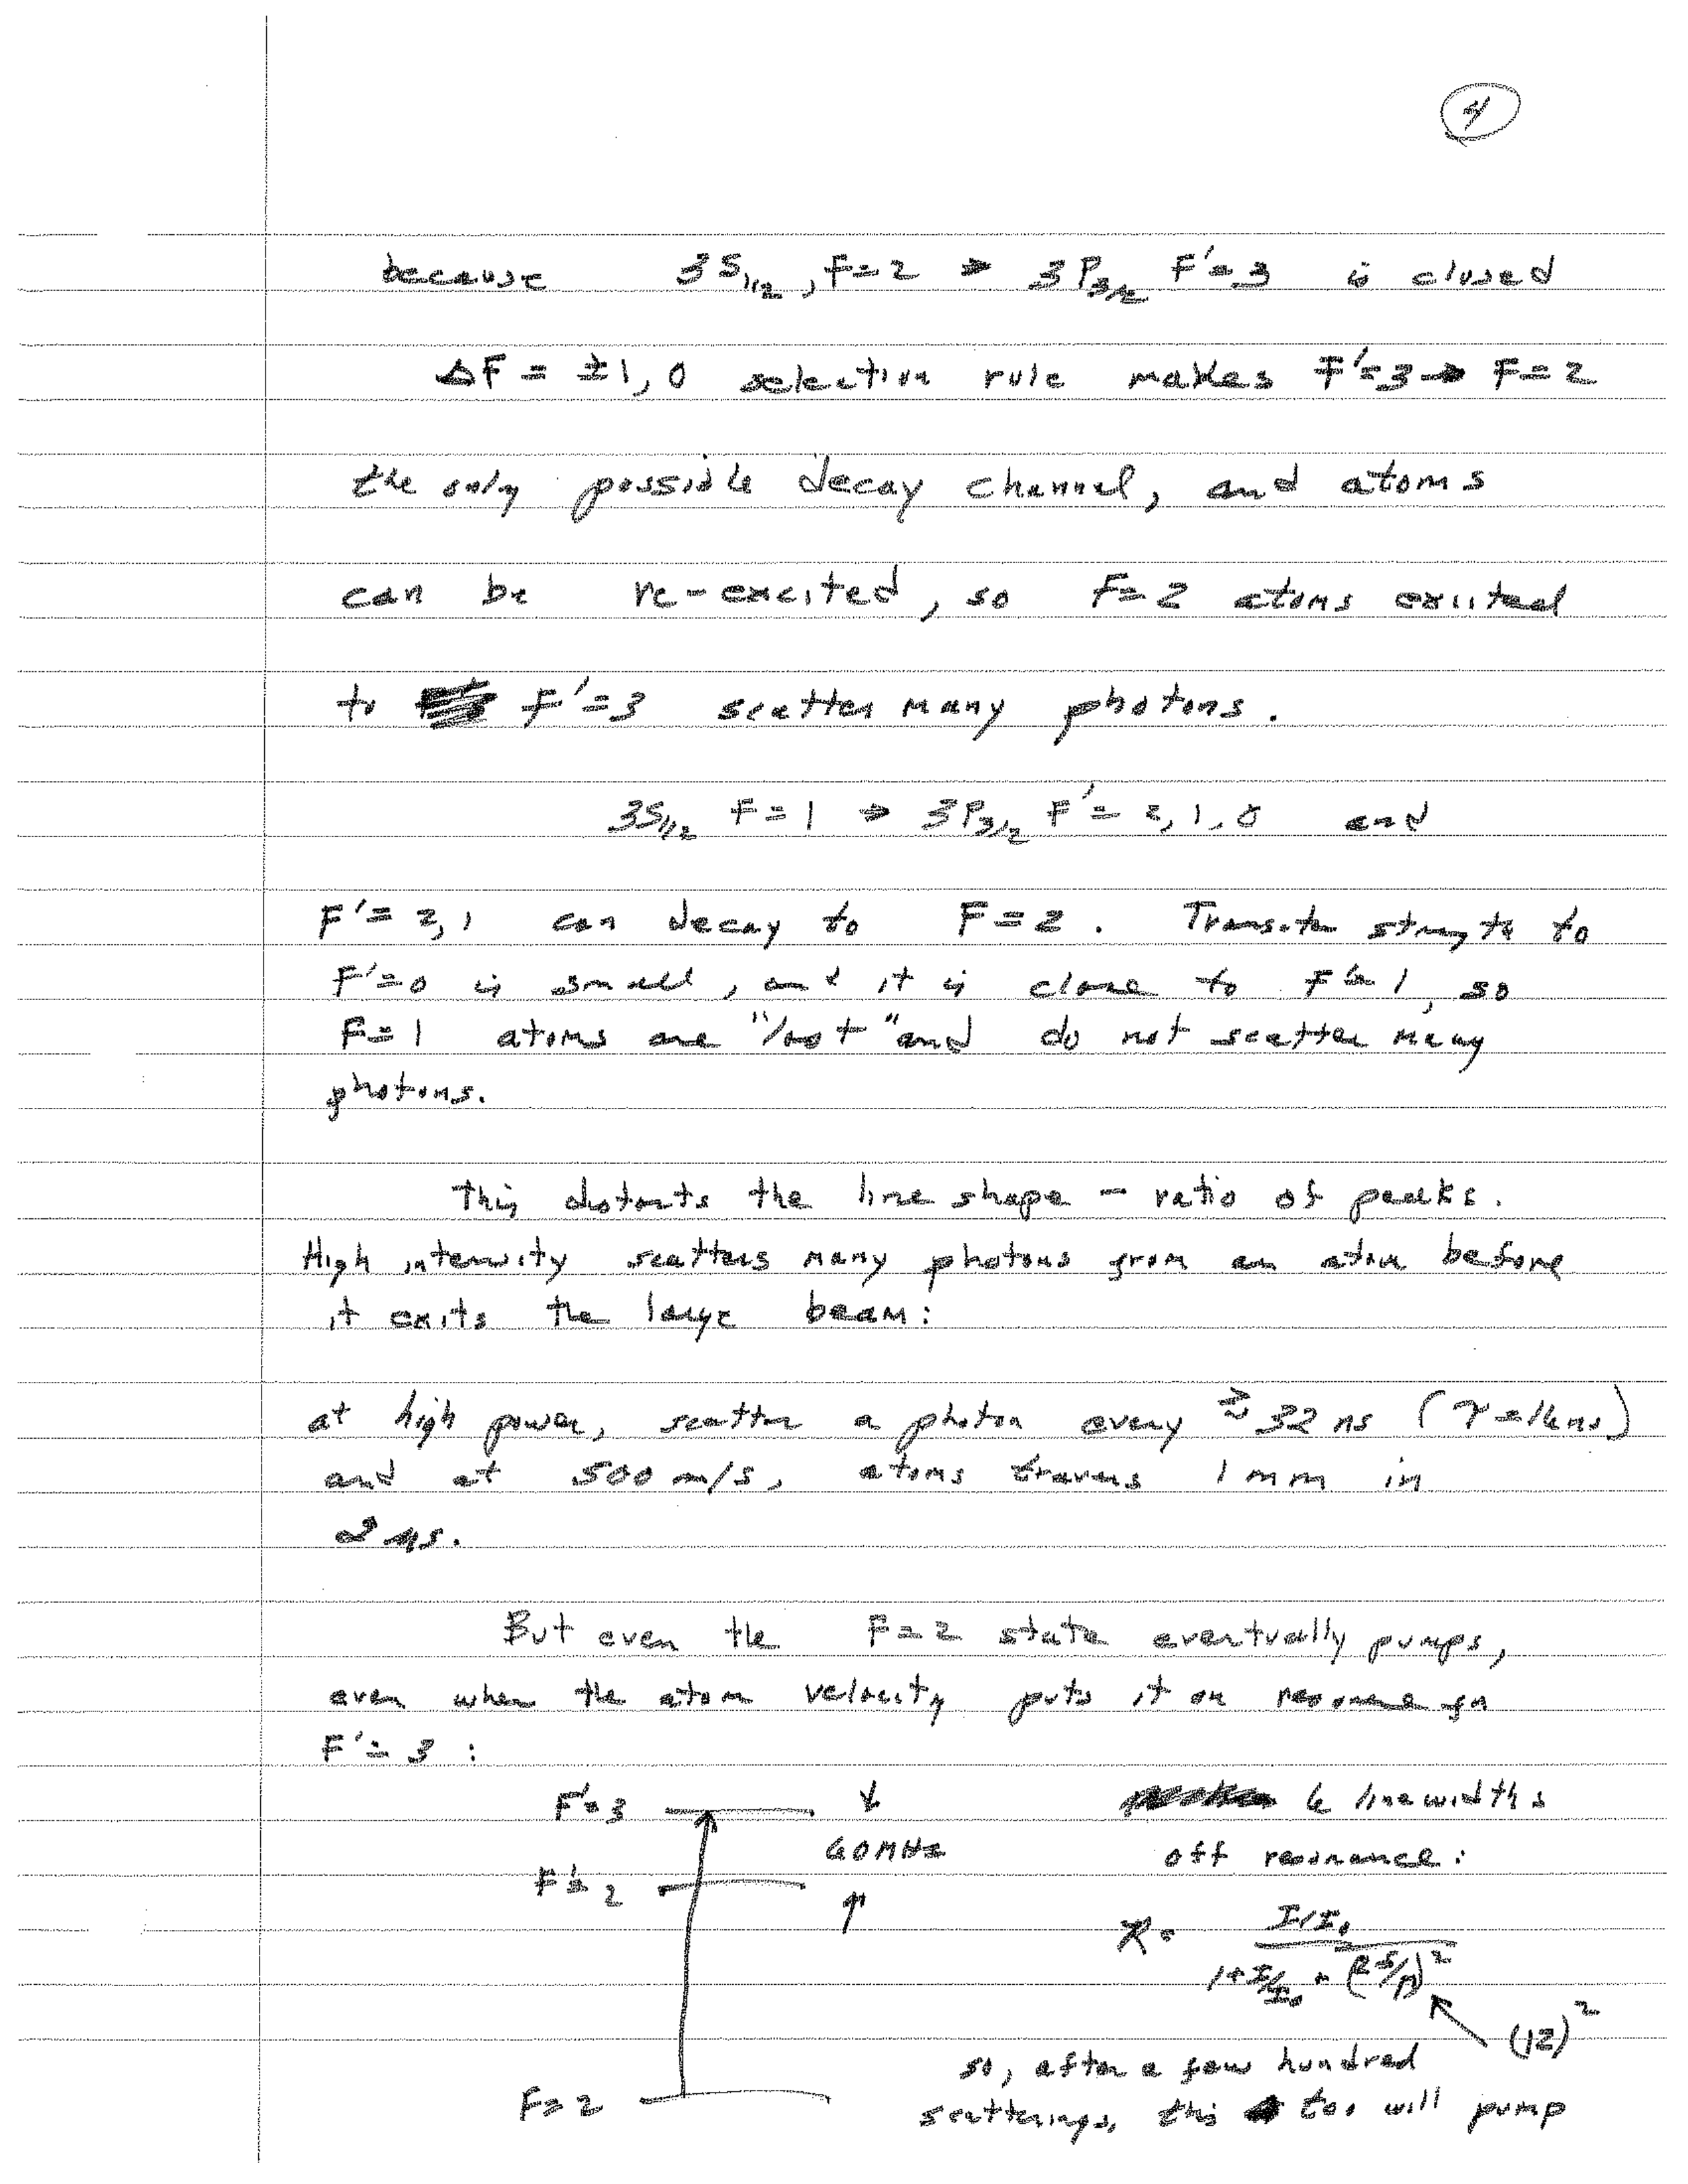 4
because 3S1/2, F=2 → 3P3/2 F'=3 is closed
ΔF = ±1, 0 selection rule makes F'=3 → F=2
the only possible decay channel, and atoms
can be re-excited, so F=2 atoms excited
to F'=3 scatter many photons.
3S1/2 F=1 → 3P3/2 F'=2,1,0 and
F'=2,1 can decay to F=2. Transition strength to
F'=0 is small, and it is close to F'=1, so
F=1 atoms are "lost" and do not scatter many
photons.
This distorts the line shape – ratio of peaks.
High intensity scatters many photons from an atom before
it exits the large beam:
at high power, scatter a photon every ≳ 32 ns (τ=16ns)
and at 500 m/s, atoms travers 1 mm in
2 μs.
But even the F=2 state eventually pumps,
even when the atom velocity puts it on resonance for
F'=3 :
F'=3 ↓ 6 linewidths
60MHz off resonance:
F'=2 ↑
R = (I/I0) / (1 + I/I0 + (2δ/Γ)^2)
(12)^2
so, after a few hundred
F=2 scatterings, this too will pump